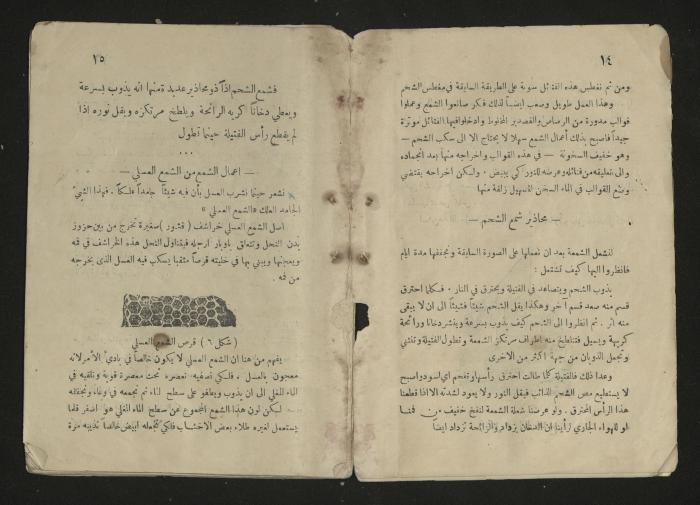 ١٤
ومن ثم نغطس هذه الفتائل سوية على الطريقة السابقة في مغطس الشحم
وهذا العمل طويل وصعب ايضاً لذلك فكر صانعوا الشمع وعملوا
قوالب مدورة من الرصاص والقصدير المخلوط وادخلوا فيها الفتائل موترة
جيداً فاصبح بذلك أعمال الشمع سهلا لا يحتاج الا الى سكب الشحم —
وهو خفيف السخونة — في هذه القوالب واخراجه منها بعد انجماده
والى تعليقه من فتائله وعرضه للنور كي يبيض . ولكن اخراجه يقتضي
وضع القوالب في الماء السخن لتسهيل زلقه منها
— محاذير شمع الشحم —
لنشعل الشمعة بعد ان نعملها على الصورة السابقة ونجففها مدة ايام
فانظروا اليها كيف تشتعل :
يذوب الشحم ويتصاعد في الفتيلة ويحترق في النار . فكلما احترق
قسم منه صعد قسم آخر وهكذا يقل الشحم شيئاً فشيئاً الى ان لا يبقى
منه اثر . ثم انظروا الى الشحم كيف يذوب بسرعة وينشر دخانا ورائحة
كريهة ويسيل فتتلطخ منه اطراف مرتكز الشمعة وتطول الفتيلة وتنثني
وتجعل الذوبان من جهة اكثر من الاخرى
وعدا ذلك فالفتيلة كلما طالت احترق رأسها وتفحم اي اسود واصبح
لا يستطيع مص الشحم الذائب فيقل النور ولا يعود لشدته الا اذا قطعنا
هذا الرأس المحترق . ولو عرضنا شعلة الشمعة لنفخ خفيف من فمنا
او للهواء الجاري لرأينا ان الدخان يزداد والرائحة تزداد ايضاً
١٥
فشمع الشحم اذاً ذو محاذير عديدة منها انه يذوب بسرعة
ويعطي دخاناً كريه الرائحة ويلطخ مرتكزه ويقل نوره اذا
لم يقطع رأس الفتيلة حينما تطول
...
— اعمال الشمع من الشمع العسلي —
نشعر حينما نشرب العسل بأن فيه شيئاً جامداً علكاً . فهذا الشيء
الجامد العلك «الشمع العسلي»
اصل الشمع العسلي خراشف ( قشور ) صغيرة تخرج من بين حزوز
بدن النحل وتتعلق باوبار ارجله فيتناول النحل هذه الخراشف في فمه
ويعجنها ويبني بها في خليته قرصاً مثقبا يسكب فيه العسل الذي يخرجه
من فمه .
( شكل ٦ ) قرص الشمع العسلي
يفهم من هنا ان الشمع العسلي لا يكون خالصاً في بادئ الأمر لانه
معجون بالعسل ، فلكي نصفيه نعصره تحت معصرة قوية ونلقيه في
الماء المغلي الى ان يذوب ويطفو على سطح الماء ثم نجمعه في وعاء ونجففه
لكن لون هذا الشمع المجموع عن سطح الماء المغلي هو اصفر قلما
يستعمل لغيره طلاء بعض الاخشاب فلكي نجعله ابيض خالصاً نذيبه مرة